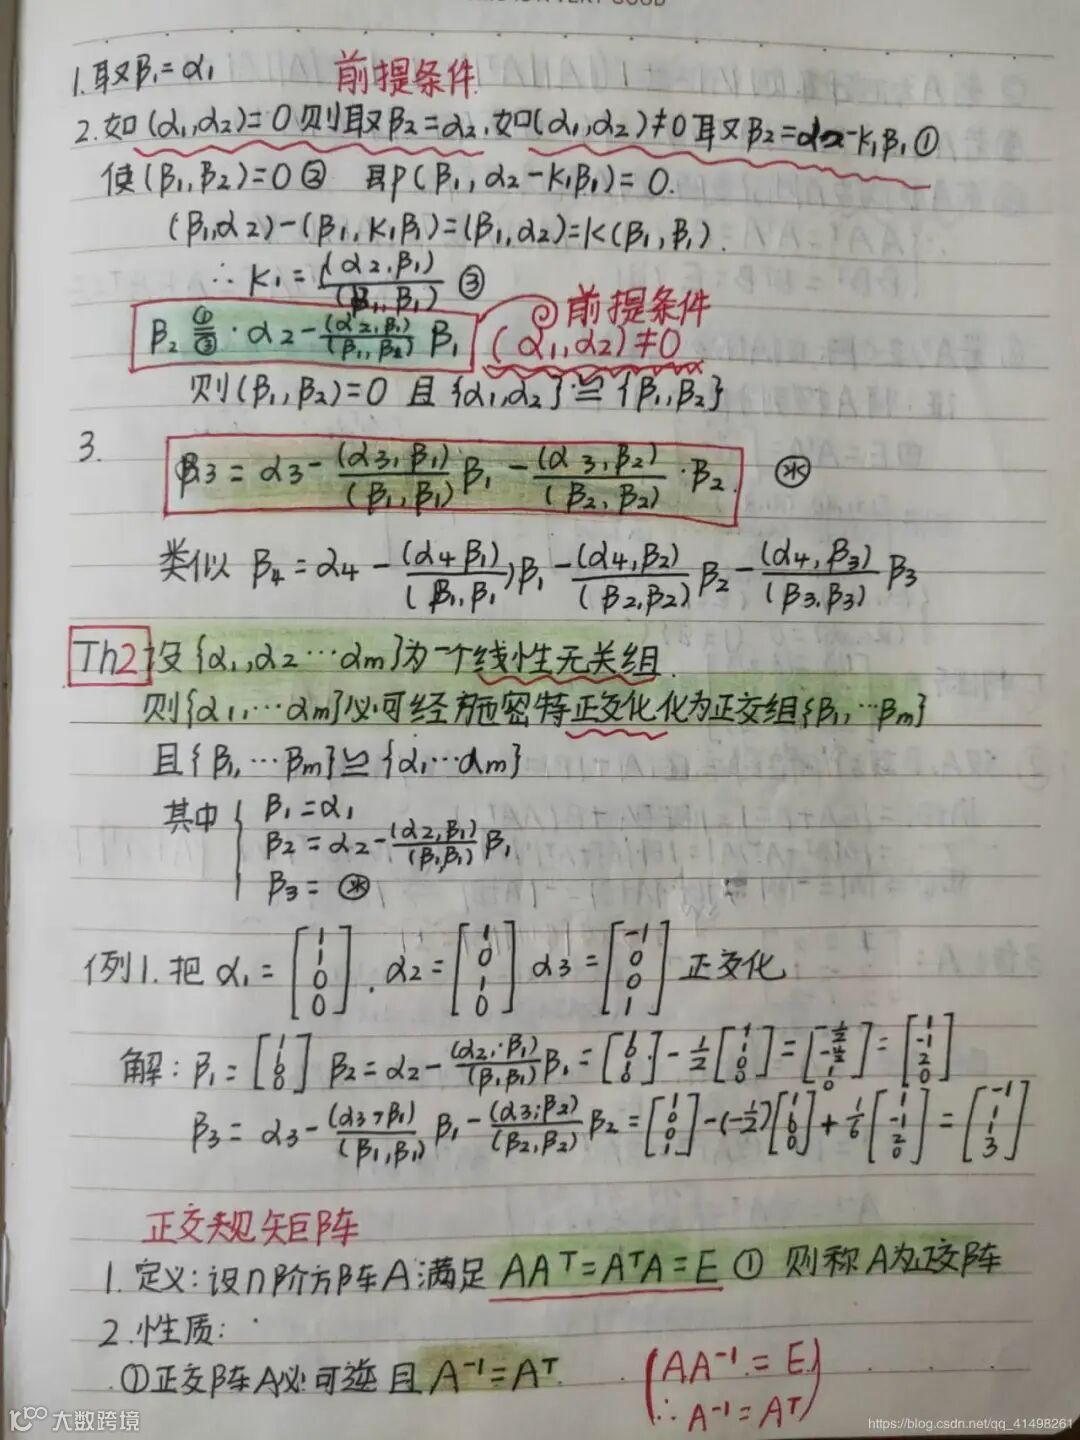 1.取β₁=α₁ 前提条件
2.如(α₁,α₂)=0则取β₂=α₂.如(α₁,α₂)≠0取β₂=α₂-k₁β₁①
使(β₁,β₂)=0② 即(β₁,α₂-k₁β₁)=0.
(β₁,α₂)-(β₁,k₁β₁)=(β₁,α₂)=k(β₁,β₁).
∴k₁=(α₂,β₁)/(β₁,β₁) ③
β₂ ①=③ ·α₂-(α₂,β₁)/(β₁,β₂) β₁ 前提条件 (α₁,α₂)≠0
则(β₁,β₂)=0 且{α₁,α₂}≌{β₁,β₂}
3. β₃=α₃-(α₃,β₁)/(β₁,β₁) β₁-(α₃,β₂)/(β₂,β₂)·β₂. ⊛
类似 β₄=α₄-(α₄β₁)/(β₁,β₁)β₁-(α₄,β₂)/(β₂,β₂) β₂-(α₄,β₃)/(β₃,β₃) β₃
Th2 设{α₁,α₂…αm}为一个线性无关组
则{α₁,…αm}必可经施密特正交化化为正交组{β₁,…βm}
且{β₁,…βm}≌{α₁…αm}
其中 { β₁=α₁
β₂=α₂-(α₂,β₁)/(β₁,β₁) β₁
β₃=⊛
例1.把α₁=[1 1 0 0],α₂=[1 0 1 0] α₃=[-1 0 0 1] 正交化
解:β₁= β₂=α₂-(α₂,β₁)/(β₁,β₁) β₁= -1/2 = =[1 -1 2 0]
β₃=α₃-(α₃,β₁)/(β₁,β₁) β₁-(α₃,β₂)/(β₂,β₂) β₂= -(-1/2) +1/6[1 -1 2 0]=[-1 1 1 3]
正交规矩阵
1.定义:设n阶方阵A满足 AAᵀ=AᵀA=E ① 则称A为正交阵
2.性质:
①正交阵A必可逆且A⁻¹=Aᵀ. (AA⁻¹=E.
∴A⁻¹=Aᵀ)
大数跨境
https://blog.csdn.net/qq_41498261